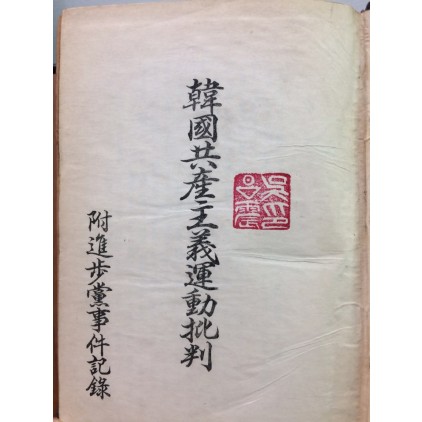 韓國共產主義運動批判
附進步黨事件記錄